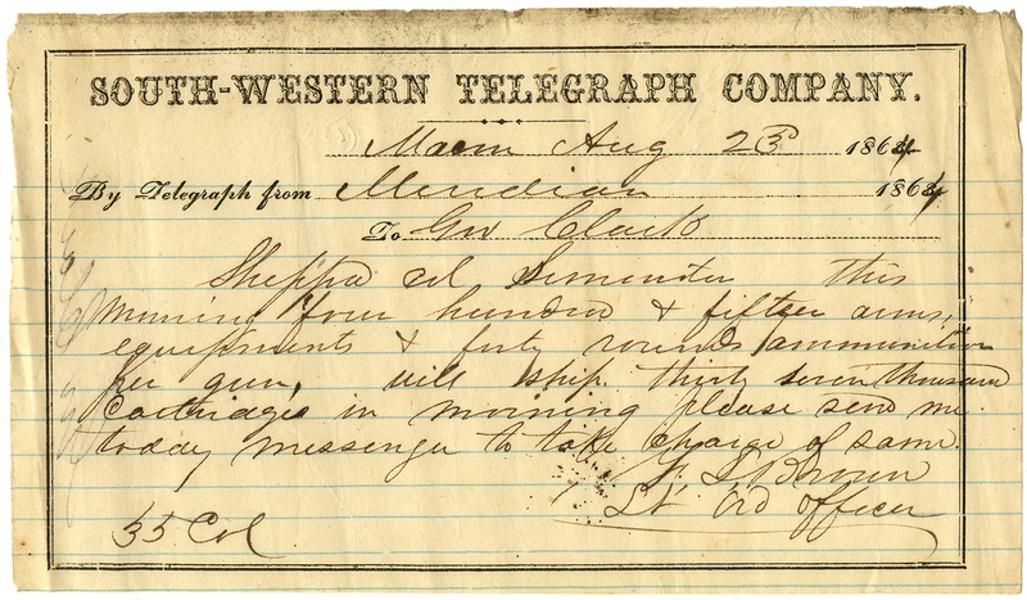 SOUTH-WESTERN TELEGRAPH COMPANY.
Macon Aug 23d 1864
By Telegraph from Meridian 1864
To Gov Clark
this
morning four hundred & fifteen arms,
equipments & forty rounds ammunition
per gun, will ship thirty seven thousand
Cartridges in morning please send me
today messenger to take charge of same.
F. L. Brown
Lt Ord officer
35 Col